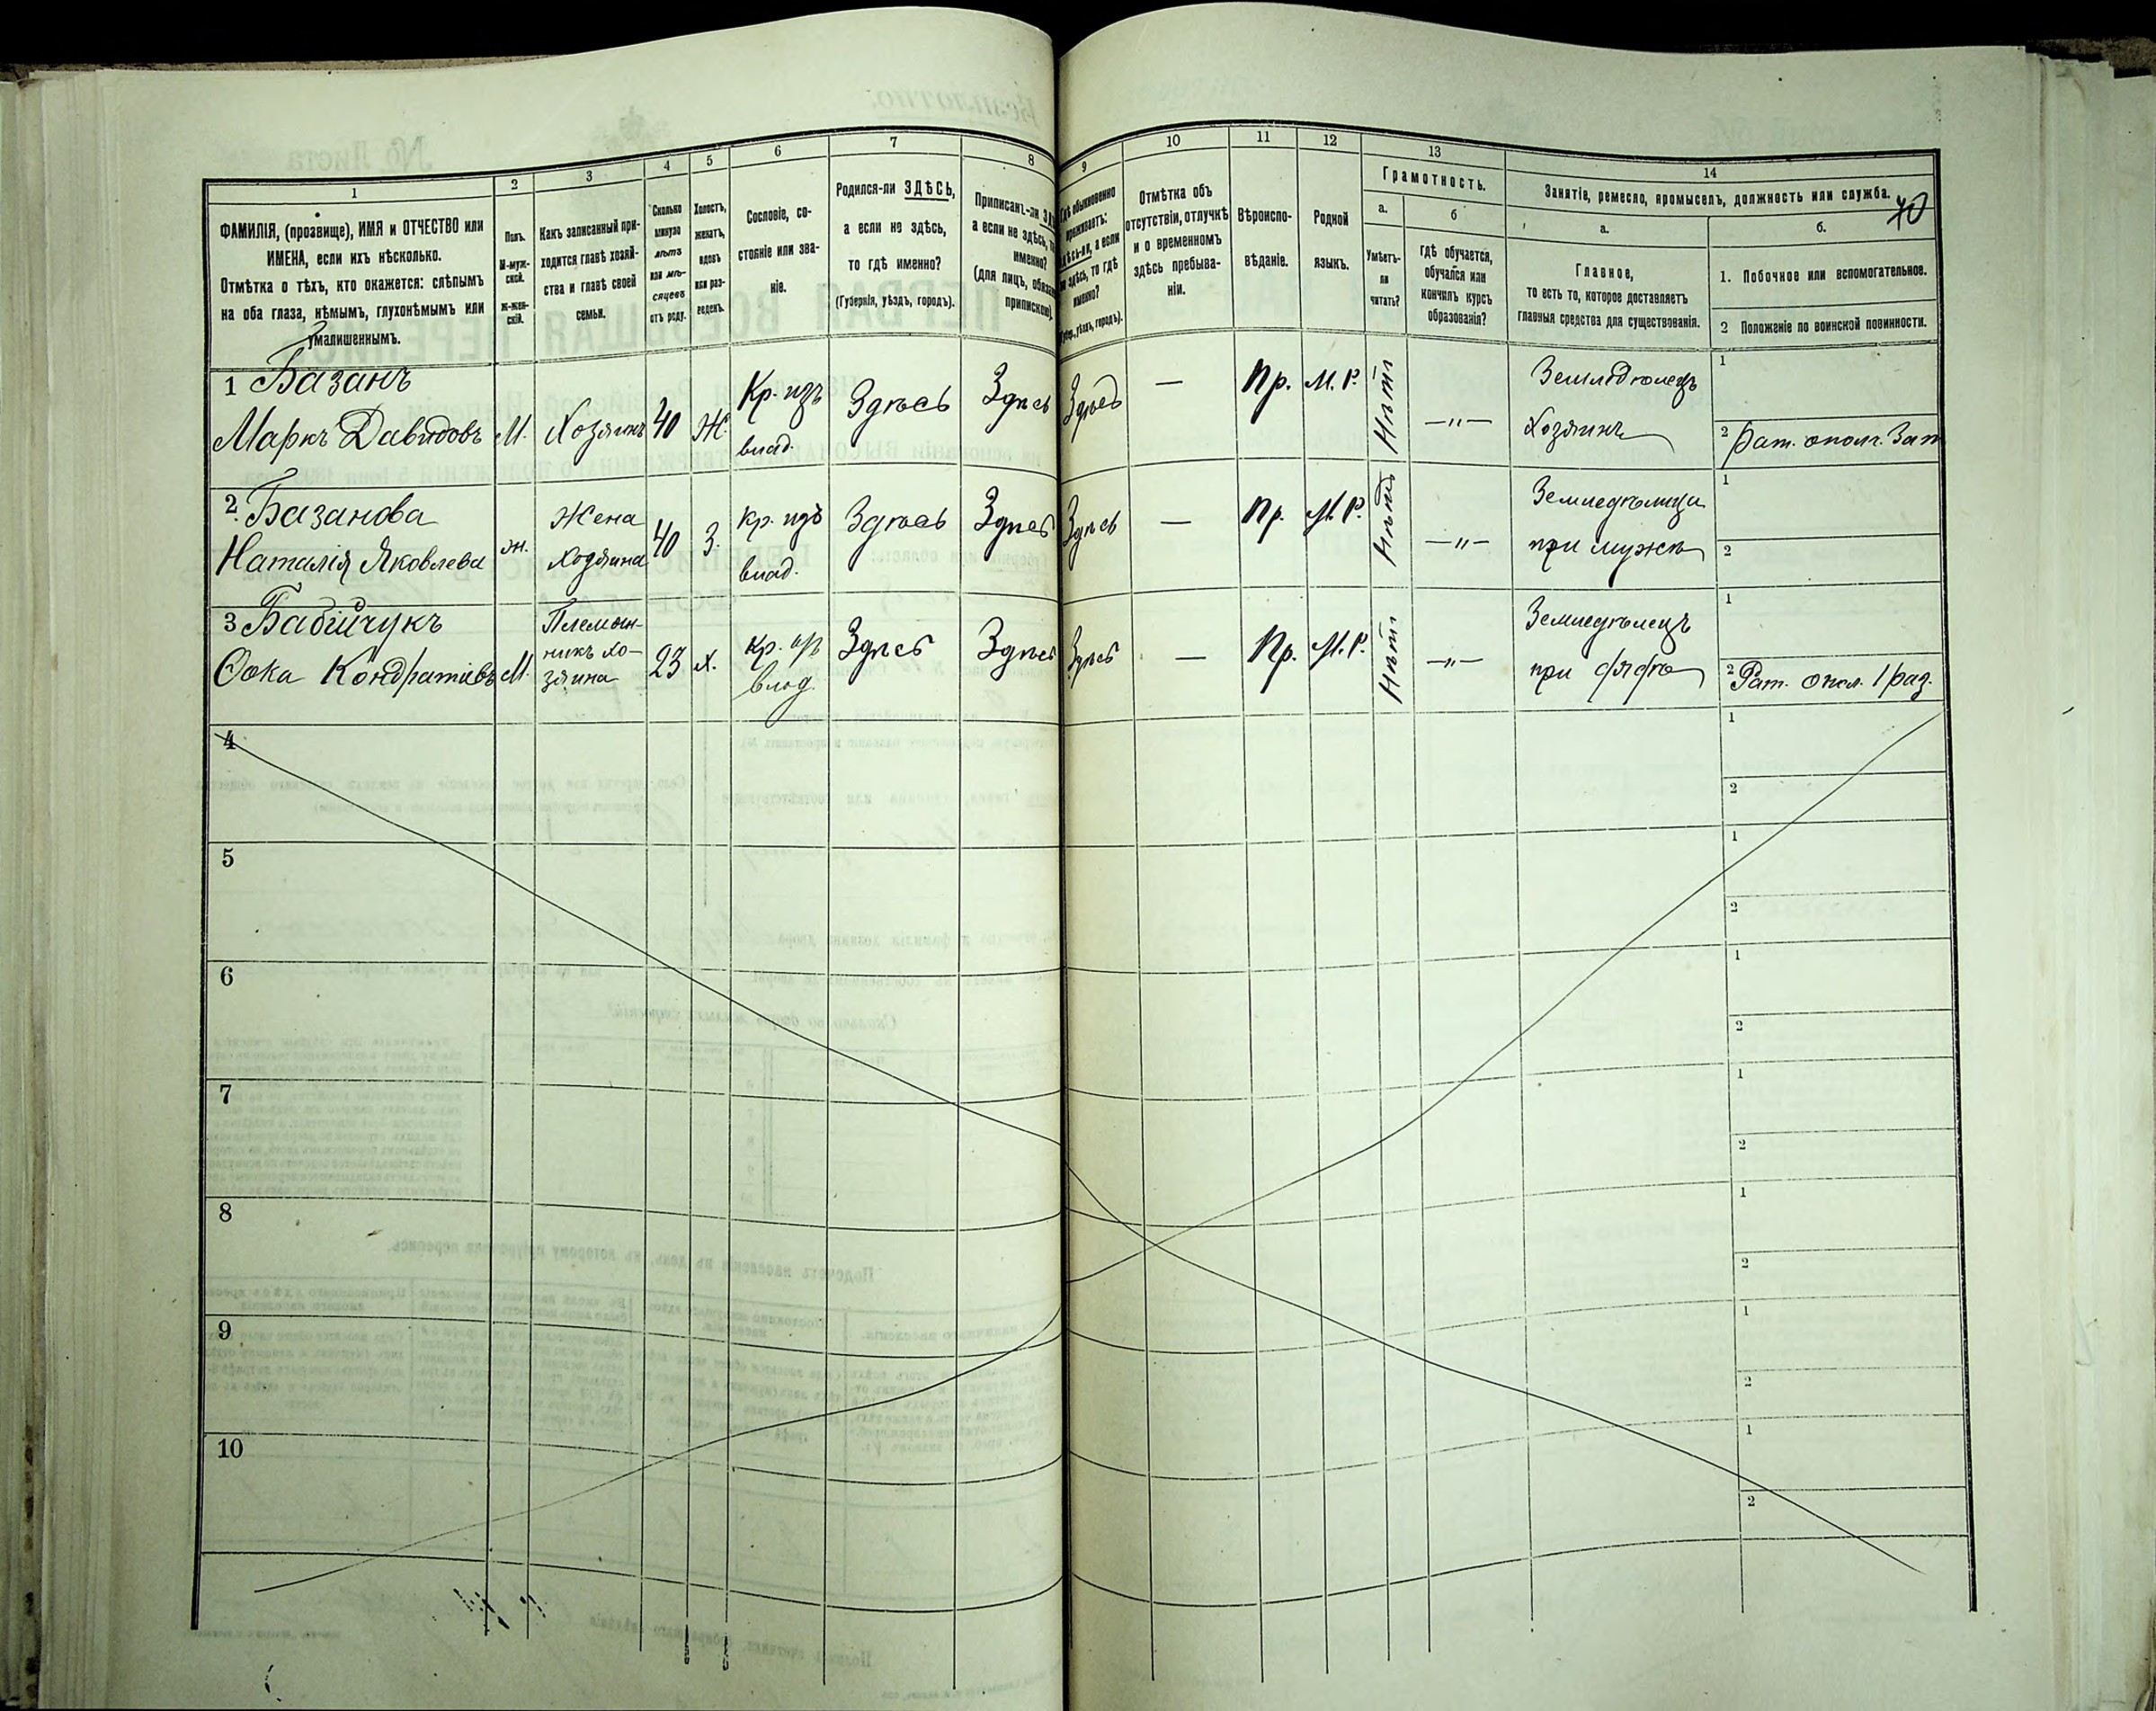 1
2
3
4
5
6
7
8
9
10
11
12
13
14
ФАМИЛІЯ, (прозвище), ИМЯ и ОТЧЕСТВО или
ИМЕНА, если ихъ нѣсколько.
Отмѣтка о тѣхъ, кто окажется: слѣпымъ
на оба глаза, нѣмымъ, глухонѣмымъ или
умалишеннымъ.
Полъ.
М-муж-
ской.
Ж-жен-
скій.
Какъ записанный при-
ходится главѣ хозяй-
ства и главѣ своей
семьи.
Сколько
минуло
лѣтъ
или мѣ-
сяцевъ
отъ роду.
Холостъ,
женатъ,
вдовъ
или раз-
веденъ.
Сословіе, со-
стояніе или зва-
ніе.
Родился-ли ЗДѢСЬ,
а если не здѣсь,
то гдѣ именно?
(Губернія, уѣздъ, городъ).
Приписанъ-ли
а если не здѣсь,
именно?
(для лицъ,
припискою)
обыкновенно
проживаетъ:
а если
здѣсь, то гдѣ
именно?
уѣздъ, городъ).
Отмѣтка объ
отсутствіи, отлучкѣ
и о временномъ
здѣсь пребыва-
ніи.
Вѣроиспо-
вѣданіе.
Родной
языкъ.
Грамотность.
а.
Умѣетъ-
ли
читать?
б
гдѣ обучается,
обучался или
кончилъ курсъ
образованія?
Занятіе, ремесло, промыселъ, должность или служба.
40
а.
Главное,
то есть то, которое доставляетъ
главныя средства для существованія.
б.
1. Побочное или вспомогательное.
2 Положеніе по воинской повинности.
1 Базанъ
Маркъ Давидовъ
М.
Хозяинъ
40
Ж.
Кр. изъ
влад.
Здѣсь
Здѣсь
Здѣсь
—
Пр.
М. Р.
Нѣтъ
—"—
Земледѣлецъ
Хозяинъ
1
2 Рат. ополч. Зап
2. Базанова
Наталія Яковлева
ж.
Жена
хозяина
40
З.
Кр. изъ
влад.
Здѣсь
Здѣсь
Здѣсь
—
Пр.
М. Р.
Нѣтъ
—"—
Земледѣлица
при мужѣ
1
2
3 Бабійчукъ
Фока Кондратіевъ
М.
Племян-
никъ хо-
зяина
23
х.
Кр. изъ
влад.
Здѣсь
Здѣсь
Здѣсь
—
Пр.
М. Р.
Нѣтъ
—"—
Земледѣлецъ
при дядѣ
1
2 Рат. опол. 1 раз.
4
1
2
5
1
2
6
1
2
7
1
2
8
1
2
9
1
2
10
1
2